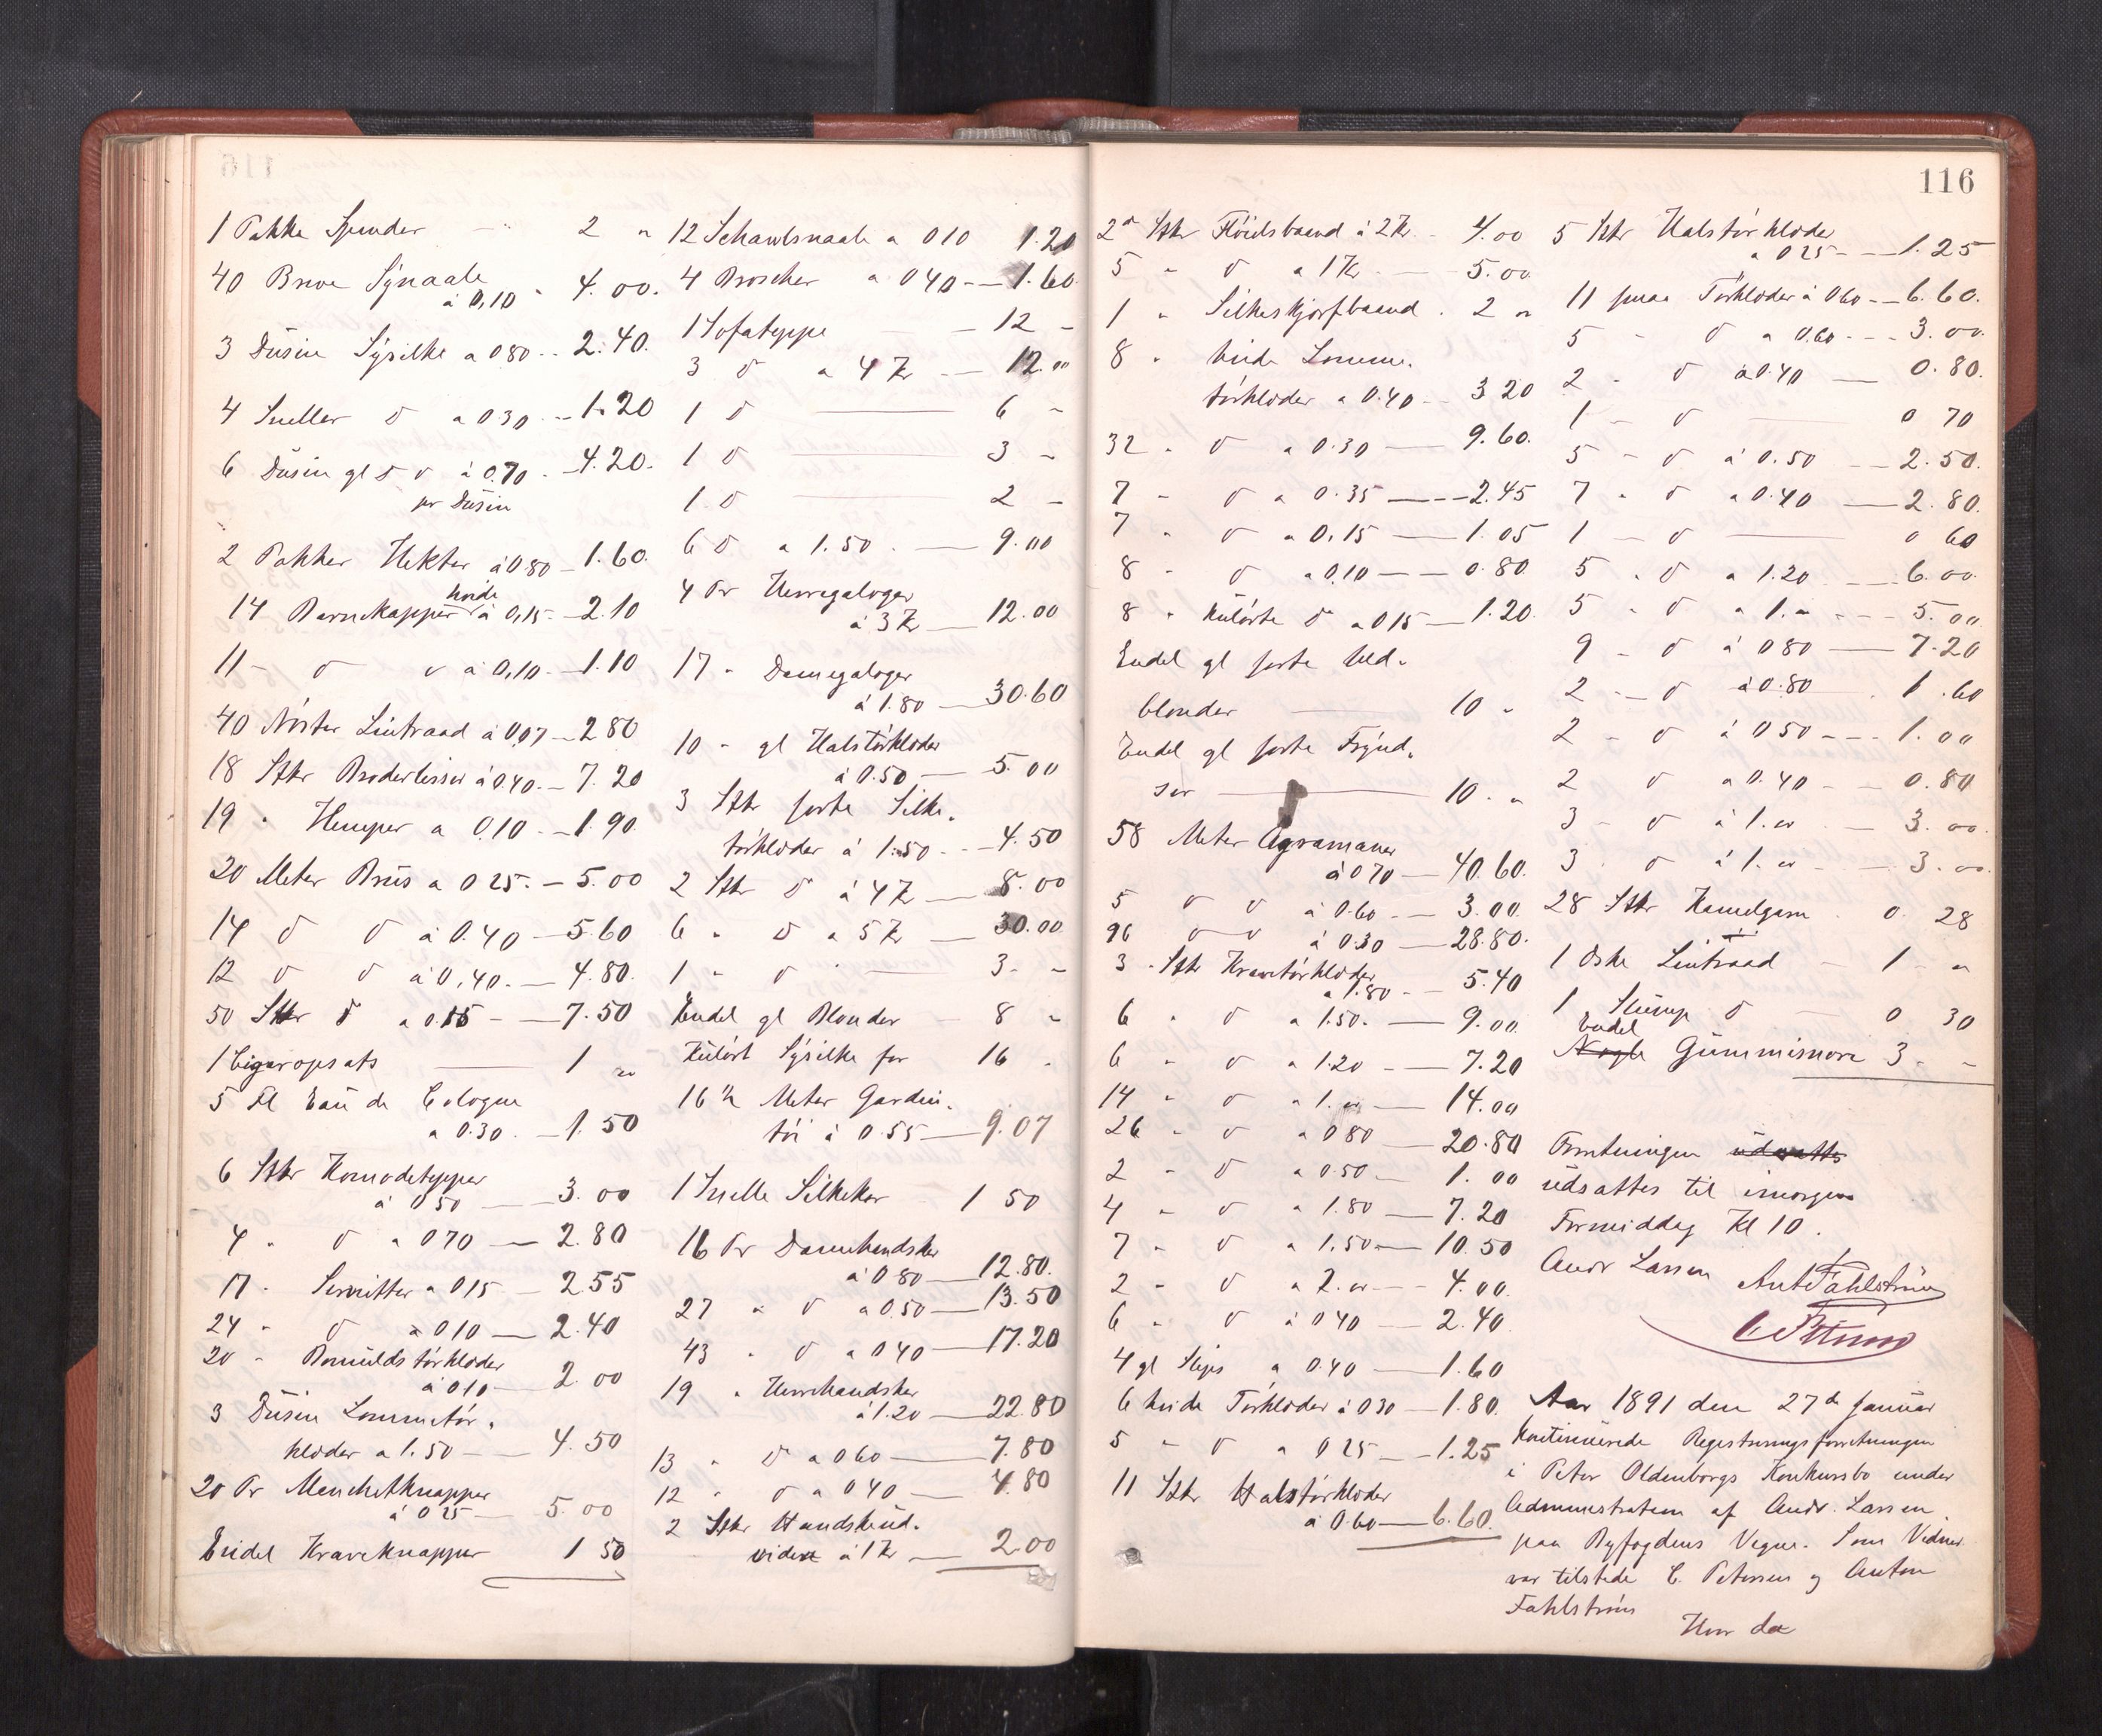 1 Pakke Spender 2 "
40 Breve Synaale
à 0,10 - 4.00.
3 Dusin Sysilke a 0 80 - 2.40.
4 Sneller d a 0.30 - 1.20
6 Dusin gl d d à 0.70 - 4.20.
pr Dusin
2 Pakker Hekter à 0 80 - 1.60.
hvide
14 Barnekapper à 0,15 - 2.10
11 - d d à 0,10 - 1.10
40 Nøster Lintraad à 0,07 - 2 80
18 Stkr Broderlisser à 0.40 - 7.20
19 " Hemper a 0,10 - 1.90
20 Meter Brus a 0 25 - 5.00
14 d d à 0.40 - 5.60
12 d d à 0.40 - 4.80.
50 Stkr d a 0.15 - 7.50
1 Cigaropsats 1 "
5 Fl Eau de Cologne
a 0.30 - 1.50
6 Stkr Komodetepper
à 0 50 - 3.00
4 " d a 0 70 - 2.80
17 " Servitter a 0 15 - 2.55
24 " d a 0 10 - 2.40
20 - Bomulds tørklæder
à 0 10 - 2.00
3 Dusin Lommetør-
klæder a 1.50 - 4.50
20 Pr Manchetknapper
à 0 25 - 5.00
Endel Kraveknapper 1 50
12 Schawlsnaale a 0 10 1.20
4 Broscher a 0 40 - 1.60.
1 Sofateppe - 12 -
3 d a 4 Kr - 12."
1 d 6 -
1 d 3 -
1 d 2 -
6 d a 1.50 - 9.00
4 Pr Herregaloger
à 3 Kr 12.00
17 " Damegaloger
à 1.80 - 30.60
10 - gl Halstørklæder
à 0.50 - 5.00
3 Stkr sorte Silke-
tørklæder à 1.50 - 4.50
2 Stkr d à 4 Kr - 8.00
6 " d a 5 Kr - 30.00
1 " d 3. -
Endel gl Blonder - 8 -
Kulørt Sysilke for 16 -
16 ½ Meter Gardin-
tøi à 0.55 - 9.07
1 Snelle Silkekor 1 50
16 Pr Damehandsker
à 0 80 - 12.80.
27 " d a 0.50 - 13.50
43 " d a 0 40 - 17.20
19 " Herrehandsker
à 1.20 - 22.80
13 " d a 0 60 - 7.80
12 " d a 0 40 - 4.80
2 Stkr Handskeud-
videre à 1 Kr - 2.00
116
2 Stkr Fløielsbaand à 2 Kr - 4.00
5 " d a 1 Kr - 5.00
1 " Silkeskjerfbaand 2 "
8 " hvide Lomme-
tørklæder a 0.40 - 3 20
32 " d a 0.30 - 9.60.
7 - d a 0.35 - 2.45
7 " d a 0,15 - 1.05
8 - d a 0,10 - 0.80
8 " kulørte d a 0 15 - 1.20.
Endel gl sorte Uld-
blonder 10 "
Endel gl sorte Frynd-
ser 10. "
58 Meter Agramaner
à 0 70 - 40.60.
5 d d à 0.60 - 3.00.
96 d d à 0.30 - 28.80.
3 - Stkr Kravetørklæder
a 1.80 - 5.40
6 " d a 1.50 - 9.00.
6 " d a 1.20 - 7.20
14 " d a 1. " - 14.00
26 " d a 0 80 - 20.80
2 - d a 0.50 - 1.00
4 " d a 1.80 - 7.20
7 - d a 1.50 - 10.50
2 - d a 2. " - 4.00.
6 " d à 0 40 - 2.40
4 gl Slips a 0.40 - 1.60
6 hvide Tørklæder à 0 30 - 1.80.
5 - d a 0 25 - 1.25
11 Stkr Halstørklæder
à 0.60 - 6.60.
5 Stkr Halstørklæder
a 0 25 - 1.25
11 smaa Tørklæder à 0 60 - 6.60.
5 - d a 0.60 - 3.00.
2 - d à 0.40 - 0.80.
1 - d 0 70
5 - d à 0.50 - 2.50.
7 " d a 0.40 - 2.80.
1 - d 0 60
5 " d a 1.20 - 6.00.
5 " d a 1. " - 5.00
9 - d à 0 80 - 7.20
2 - d à 0.80 1.60
2 - d à 0 50 - 1.00
2 d a 0.40 - 0.80
3 - d à 1. " - 3.00.
3 - d à 1. " - 3.00.
28 Stkr Kamelgarn 0. 28
1 Æske Lintraad - 1 - "
1 Slump d 0 30
Endel
Nogle Gummisnore 3 - -
Forretningen udsattes
udsattes til imorgen
Formiddag Kl 10.
Andr Larsen Ant Fahlstrøm
C Petersen
Aar 1891 den 27de Januar
kontinuerede Registreringsforretningen
i Peter Oldenborgs Konkursbo under
Administration af Andr. Larsen
paa Byfogdens Vegne. Som Vidner
var tilstede C. Petersen og Anton
Fahlstrøm
Hvor da